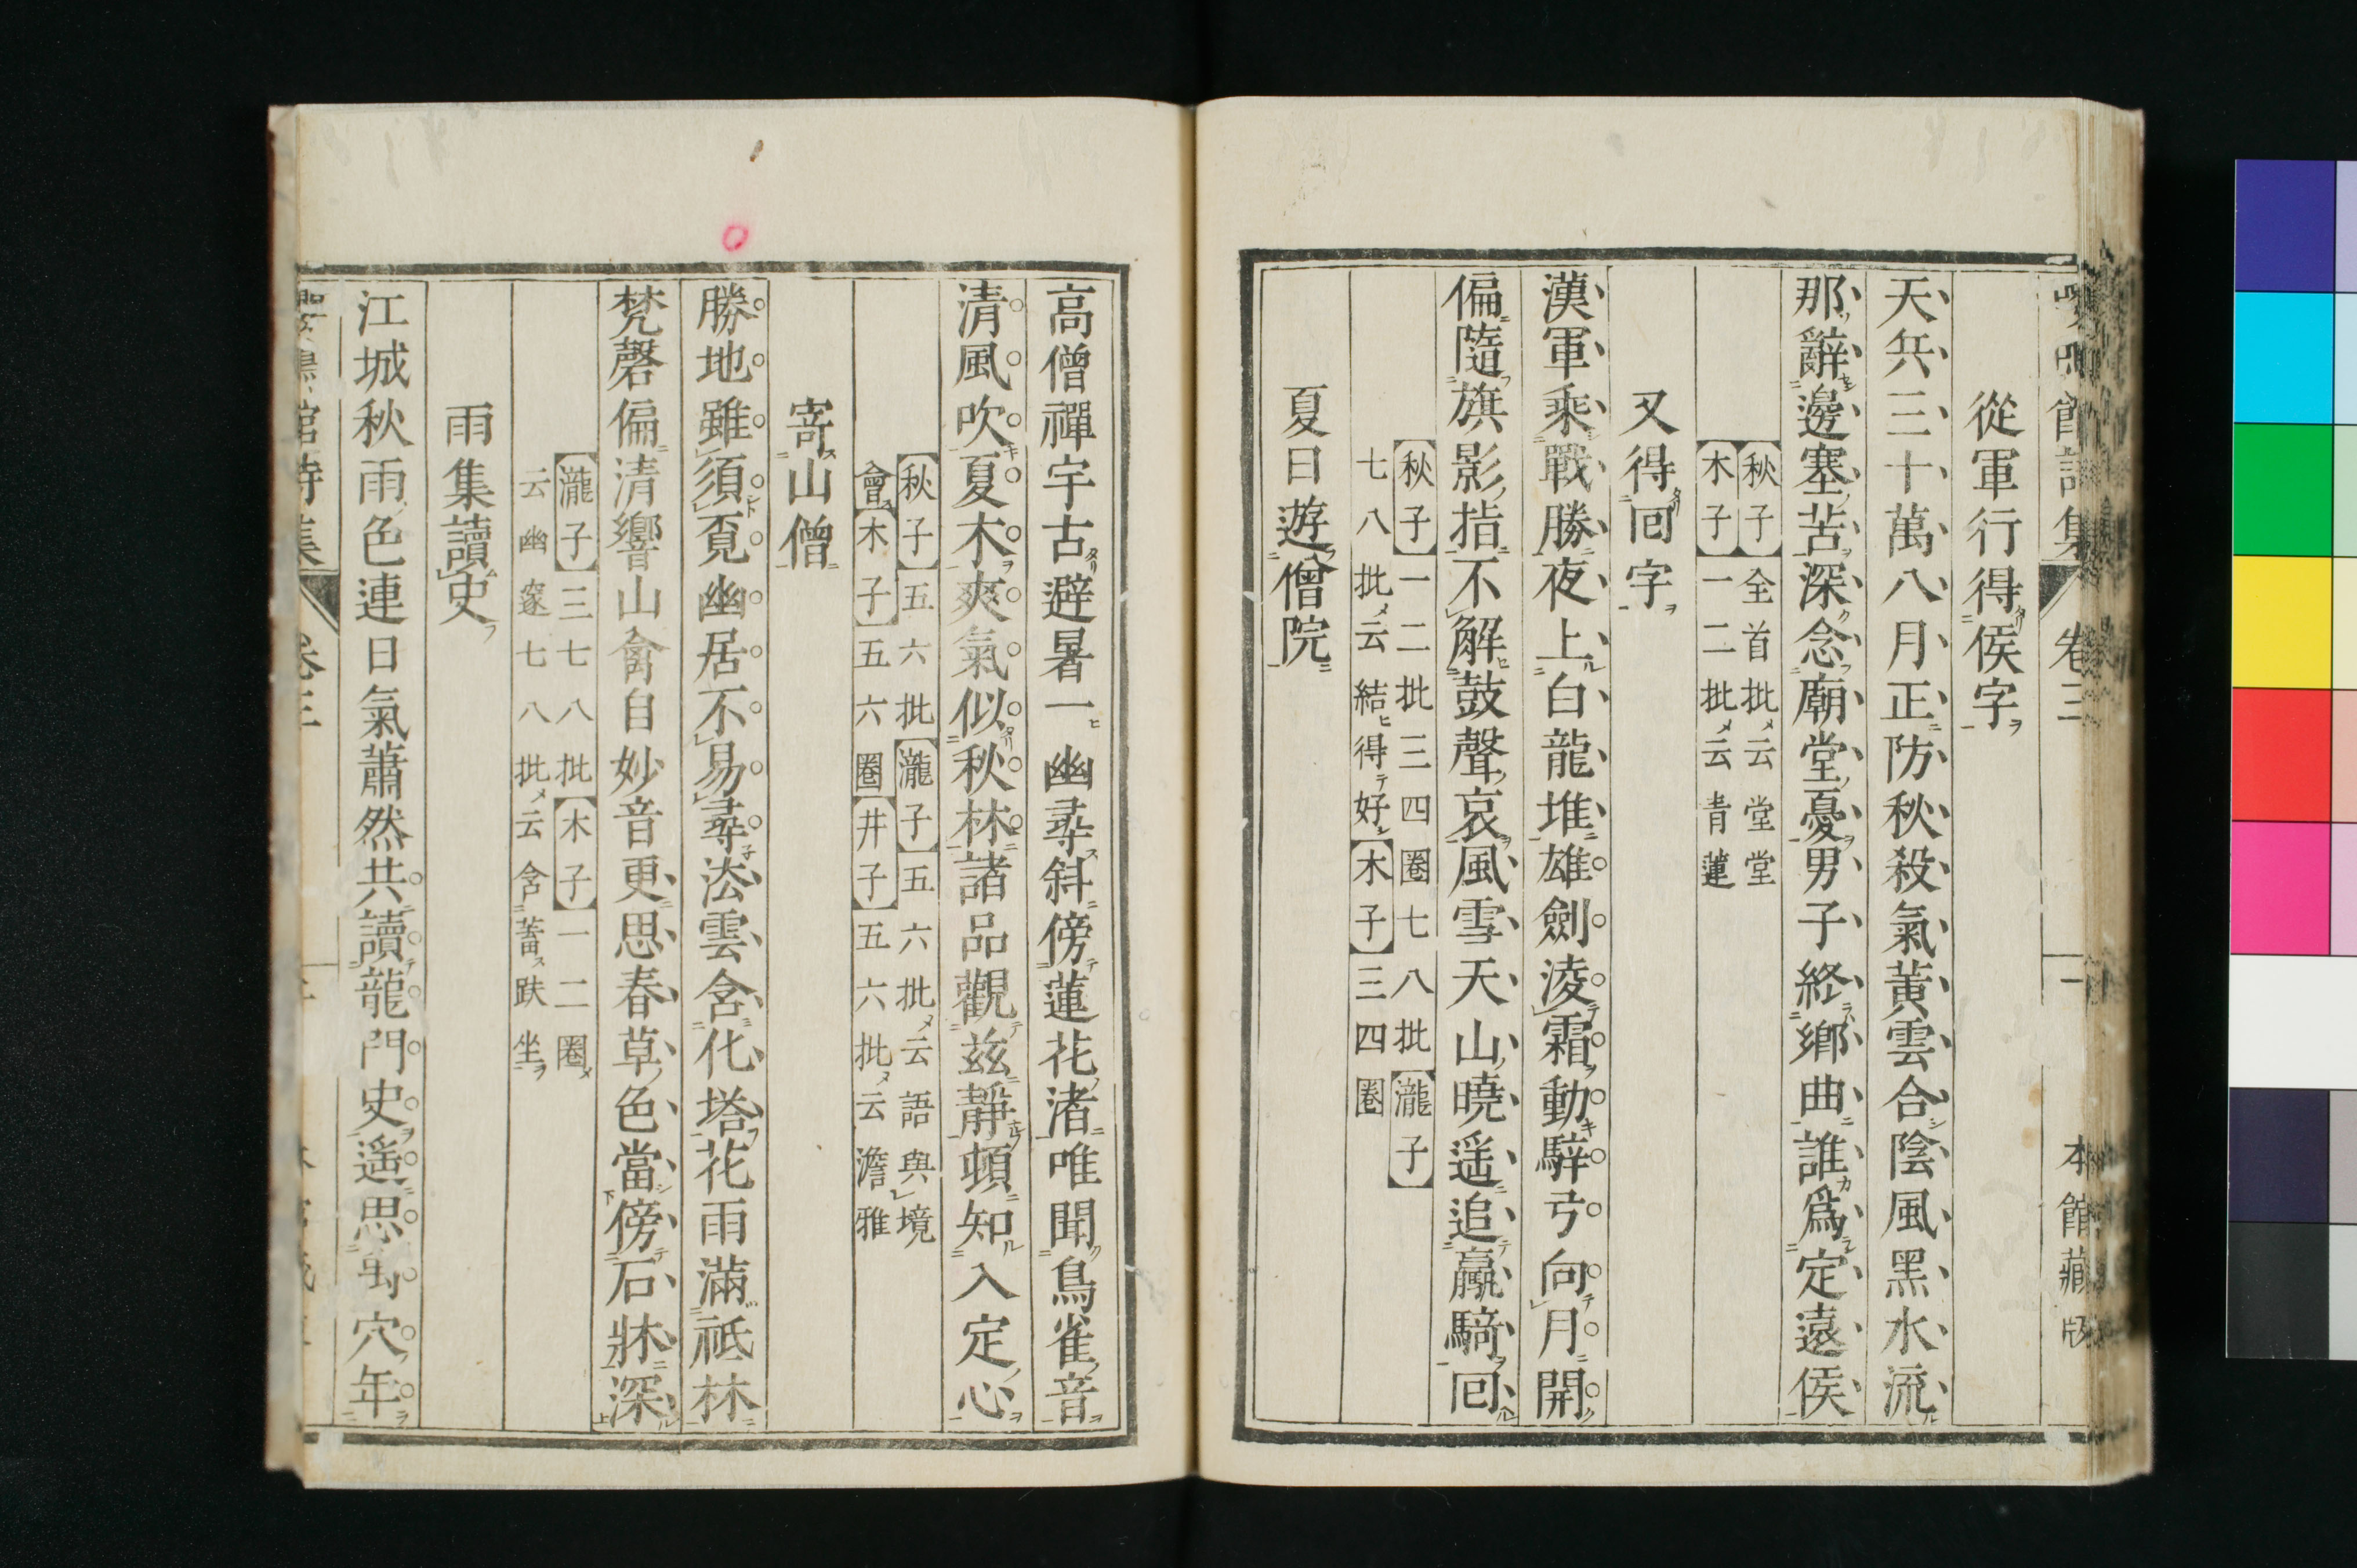 嚶鳴館詩集 卷三 一 本館藏版
從軍行得侯字
天兵三十萬八月正防秋殺氣黃雲合陰風黑水流
那辭邊塞苦深念廟堂憂男子終鄉曲誰爲定遠侯
【秋子】全首批云堂堂
【木子】一二批云青蓮
又得回字
漢軍乘戰勝夜上白龍堆雄劍淩霜動騂弓向月開
偏隨旗影指不解鼓聲哀風雪天山曉遥追驘騎回
【秋子】一二批三四圈七八批【瀧子】
七八批云結得好【木子】三四圈
夏日遊僧院
高僧禪宇古避暑一幽尋斜傍蓮花渚唯聞鳥雀音
清風吹夏木爽氣似秋林諸品觀茲靜頓知入定心
【秋子】五六批【瀧子】五六批云語與境
會【木子】五六圈【井子】五六批云澹雅
寄山僧
勝地雖須覓幽居不易尋法雲含化塔花雨滿祗林
梵磬偏清響山禽自妙音更思春草色當傍石牀深
【瀧子】三七八批【木子】一二圈
云幽邃七八批云含蓄趺坐
雨集讀史
江城秋雨色連日氣蕭然共讀龍門史遥思穴年
嚶鳴館詩集 卷三